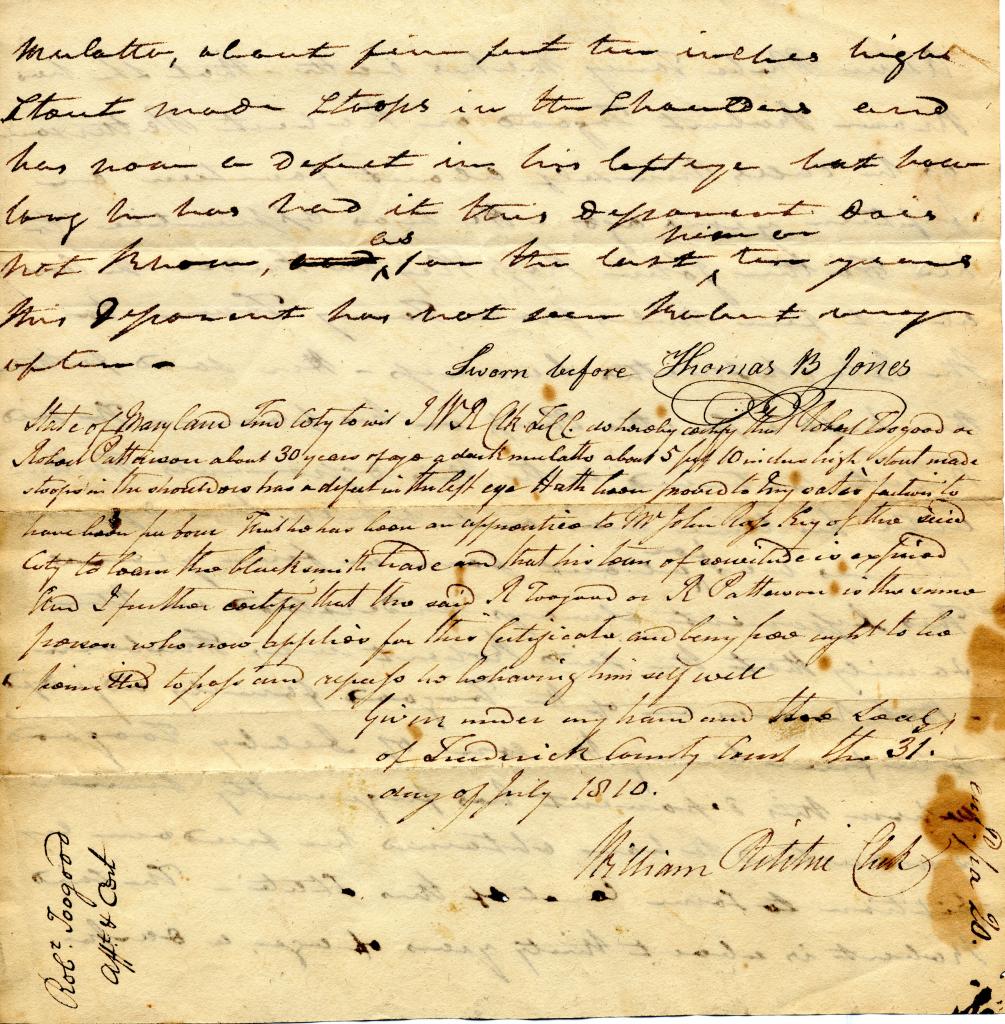 Mulatto, about five feet ten inches high
Stout made Stoops in the Shoulders and
has now a Defect in his left eye but how
long he has had it this deponent dois
not Know, and as for the last nine or ten years
this Deponent has not seen Robert very
often -
Sworn before Thomas B Jones
State of Maryland Fred Coty to wit I W R Clk F C C do hereby certify that Robert Toogood or
Robert Patterson about 30 years of age a dark mulatto about 5 feet 10 inches high stout made
stoops in the shoulders has a defect in the left eye Hath been proved to my satisfaction to
have been free born That he has been an apprentice to Mr John Ross Key of the said
Coty to learn the blacksmith trade and that his term of servitude is expired
And I further certify that the said R Toogood or R Patterson is the same
person who now applies for this Certificate and being free ought to be
permitted to pass and repass he behaving himself well
Given under my hand and the Seal
of Frederick County Court the 31.
day of July 1810.
William Ritchie Clerk
Robt. Toogood
Afft & Cert